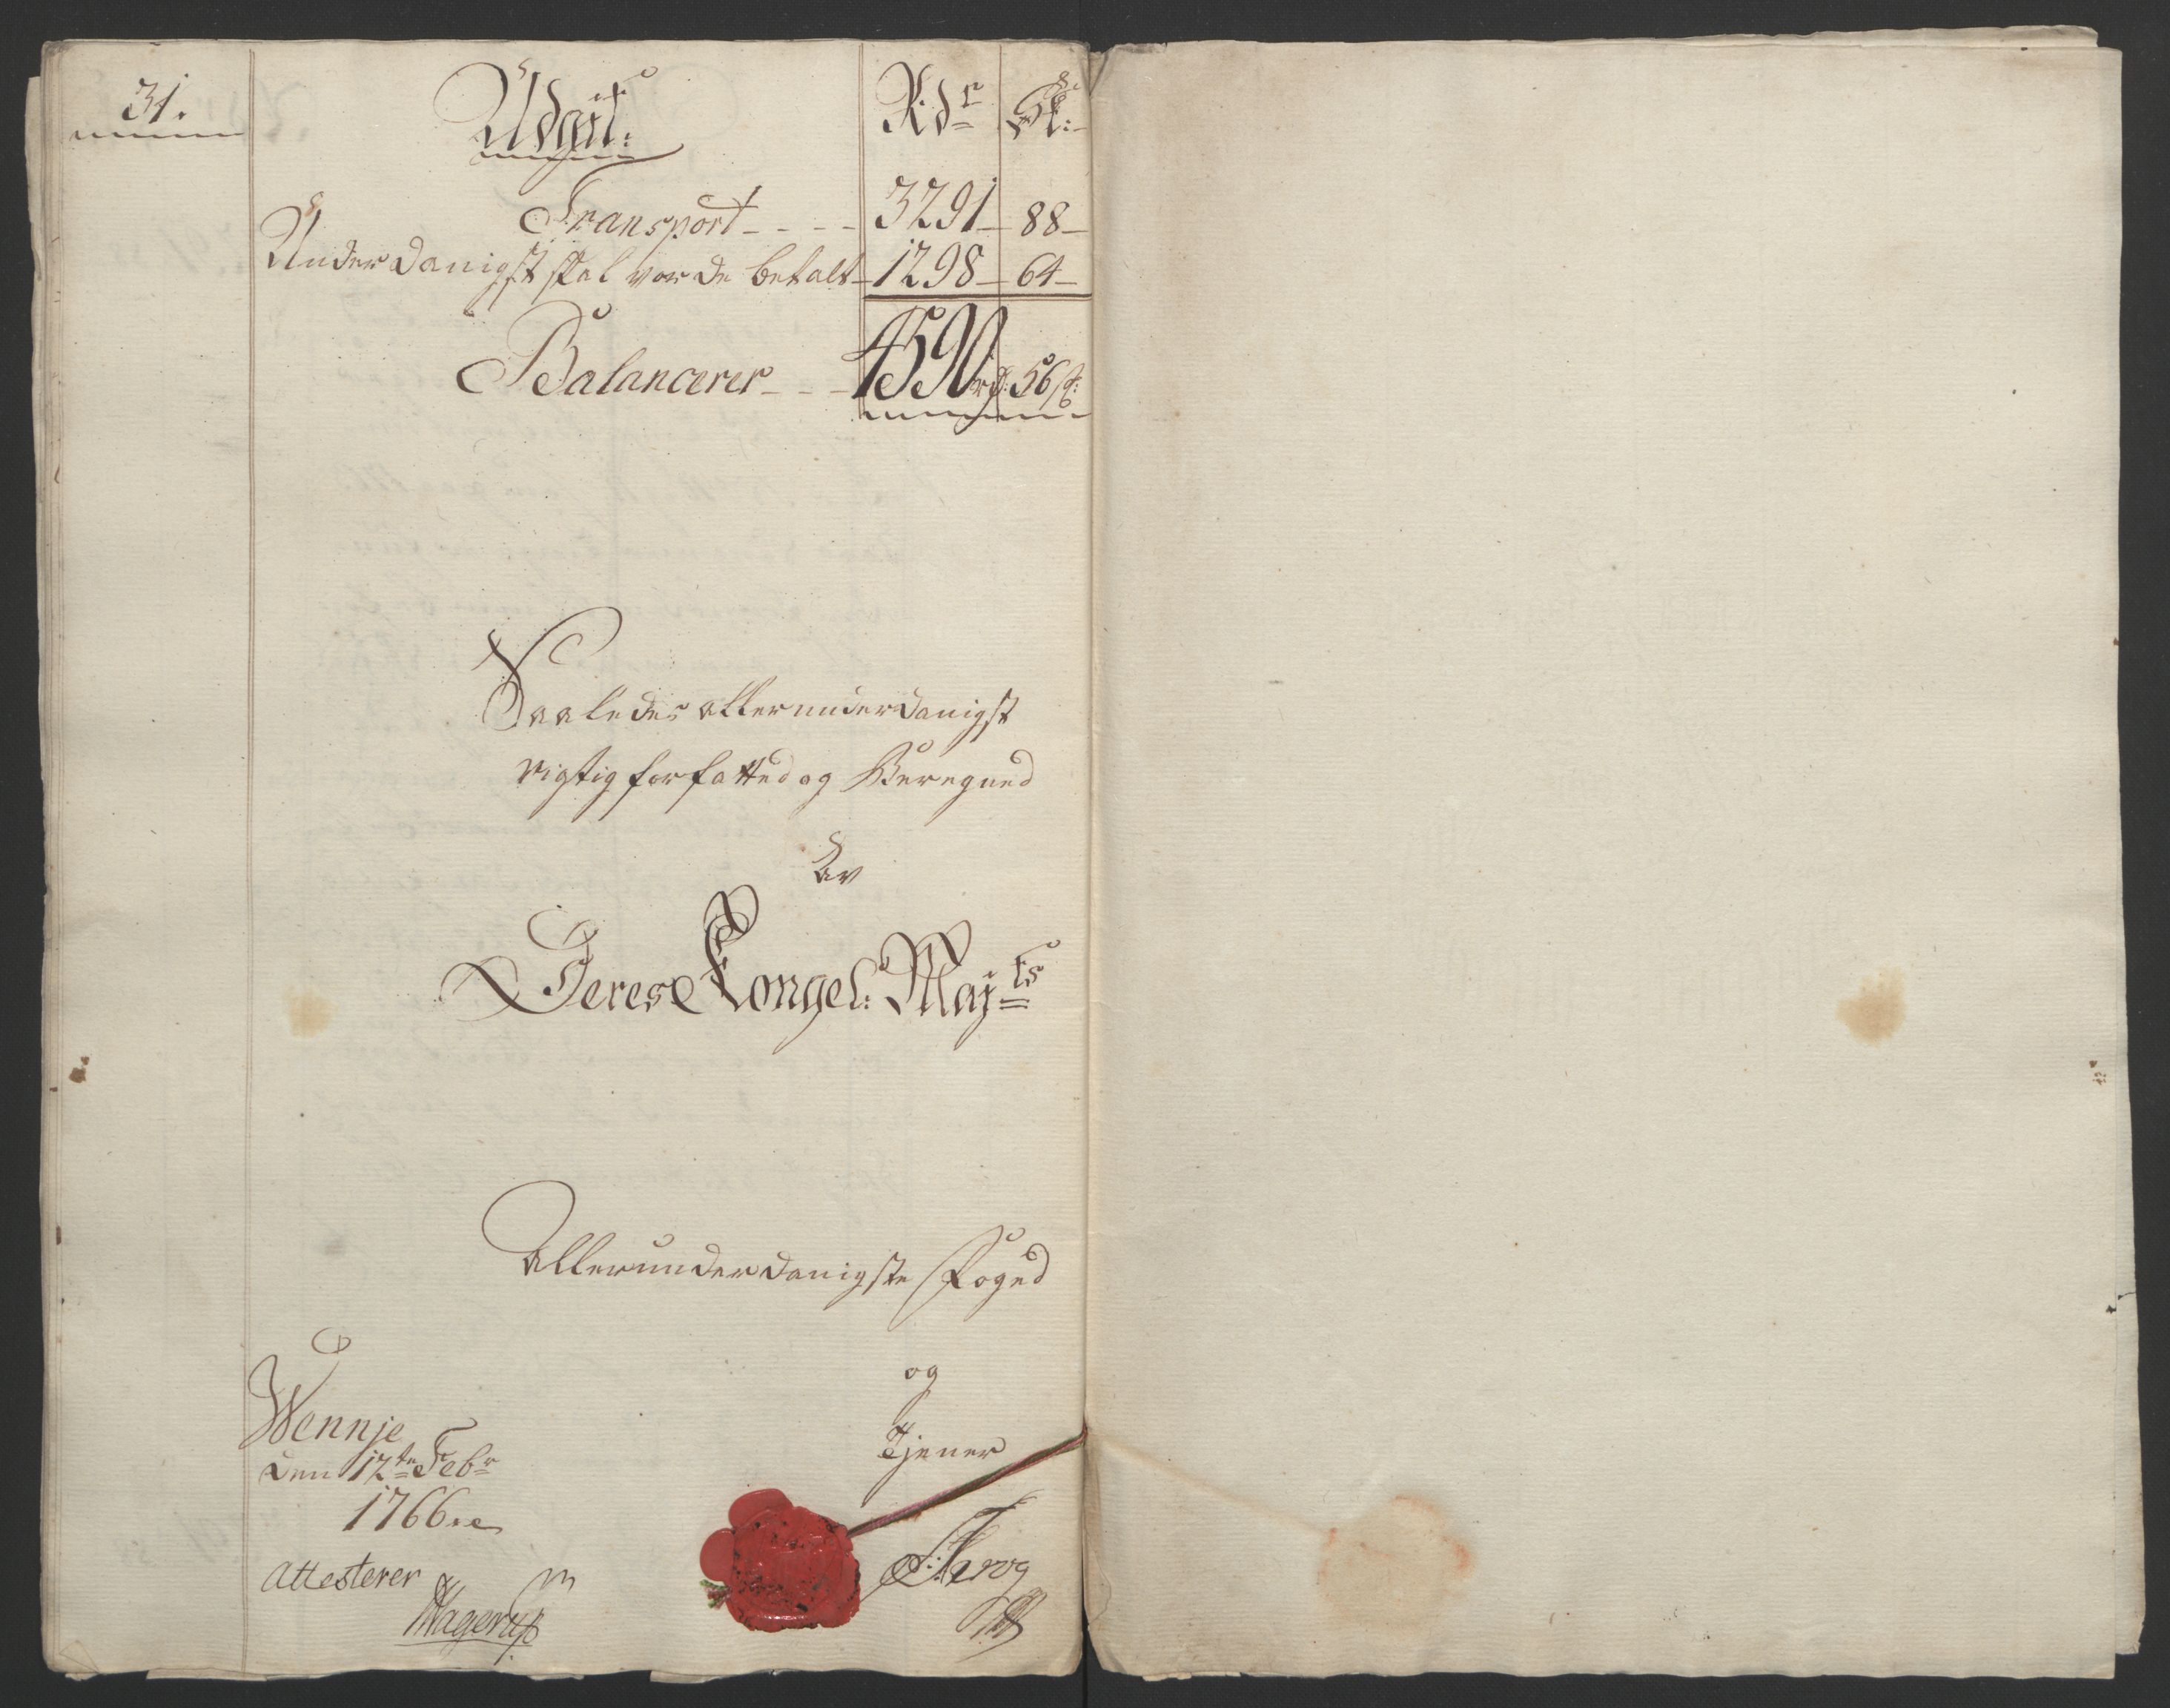 31.
Udgift: Rdr Sk:
Transport - - - - 3291 - 88 -
Underdanigst skal vorde betalt - 1298 - 64 -
Balancerer - - - 4590 rd: 56 s:
Saaledes allerunderdanigst
rigtig forfatted og Beregned
av
Deres Kongel: Majts
Allerunderdanigste Foged
og
Tjener
Wennje
den 12te Febr
1766
Attesterer